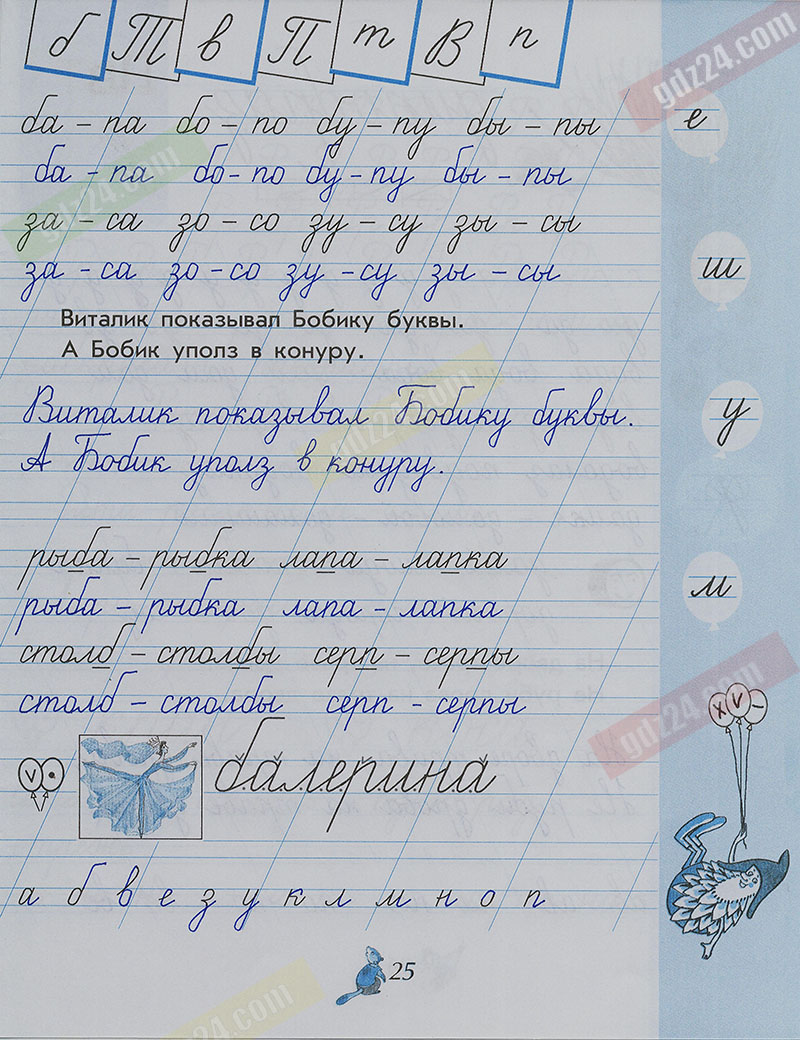 б Т в П т В п
gdz24.com
ба – па бо – по бу – пу бы – пы
е
ба – па бо – по бу – пу бы – пы
gdz24.com
за – са зо – со зу – су зы – сы
за – са зо – со зу – су зы – сы
ш
Виталик показывал Бобику буквы.
А Бобик уполз в конуру.
Виталик показывал Бобику буквы.
у
gdz24.com
А Бобик уполз в конуру.
рыба – рыбка лапа – лапка
м
рыба – рыбка лапа – лапка
столб – столбы серп – серпы
столб – столбы серп – серпы
gdz24.com
х v –
v •
балерина
а б в е з у к л м н о п
25
gdz24.com